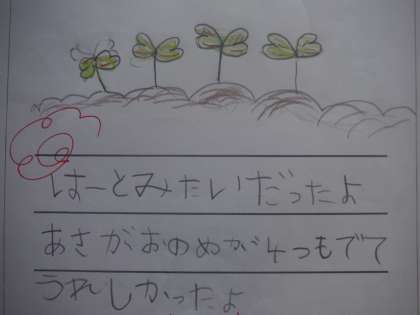 はーとみたいだったよ
あさがおのめが4つもでて
うれしかったよ